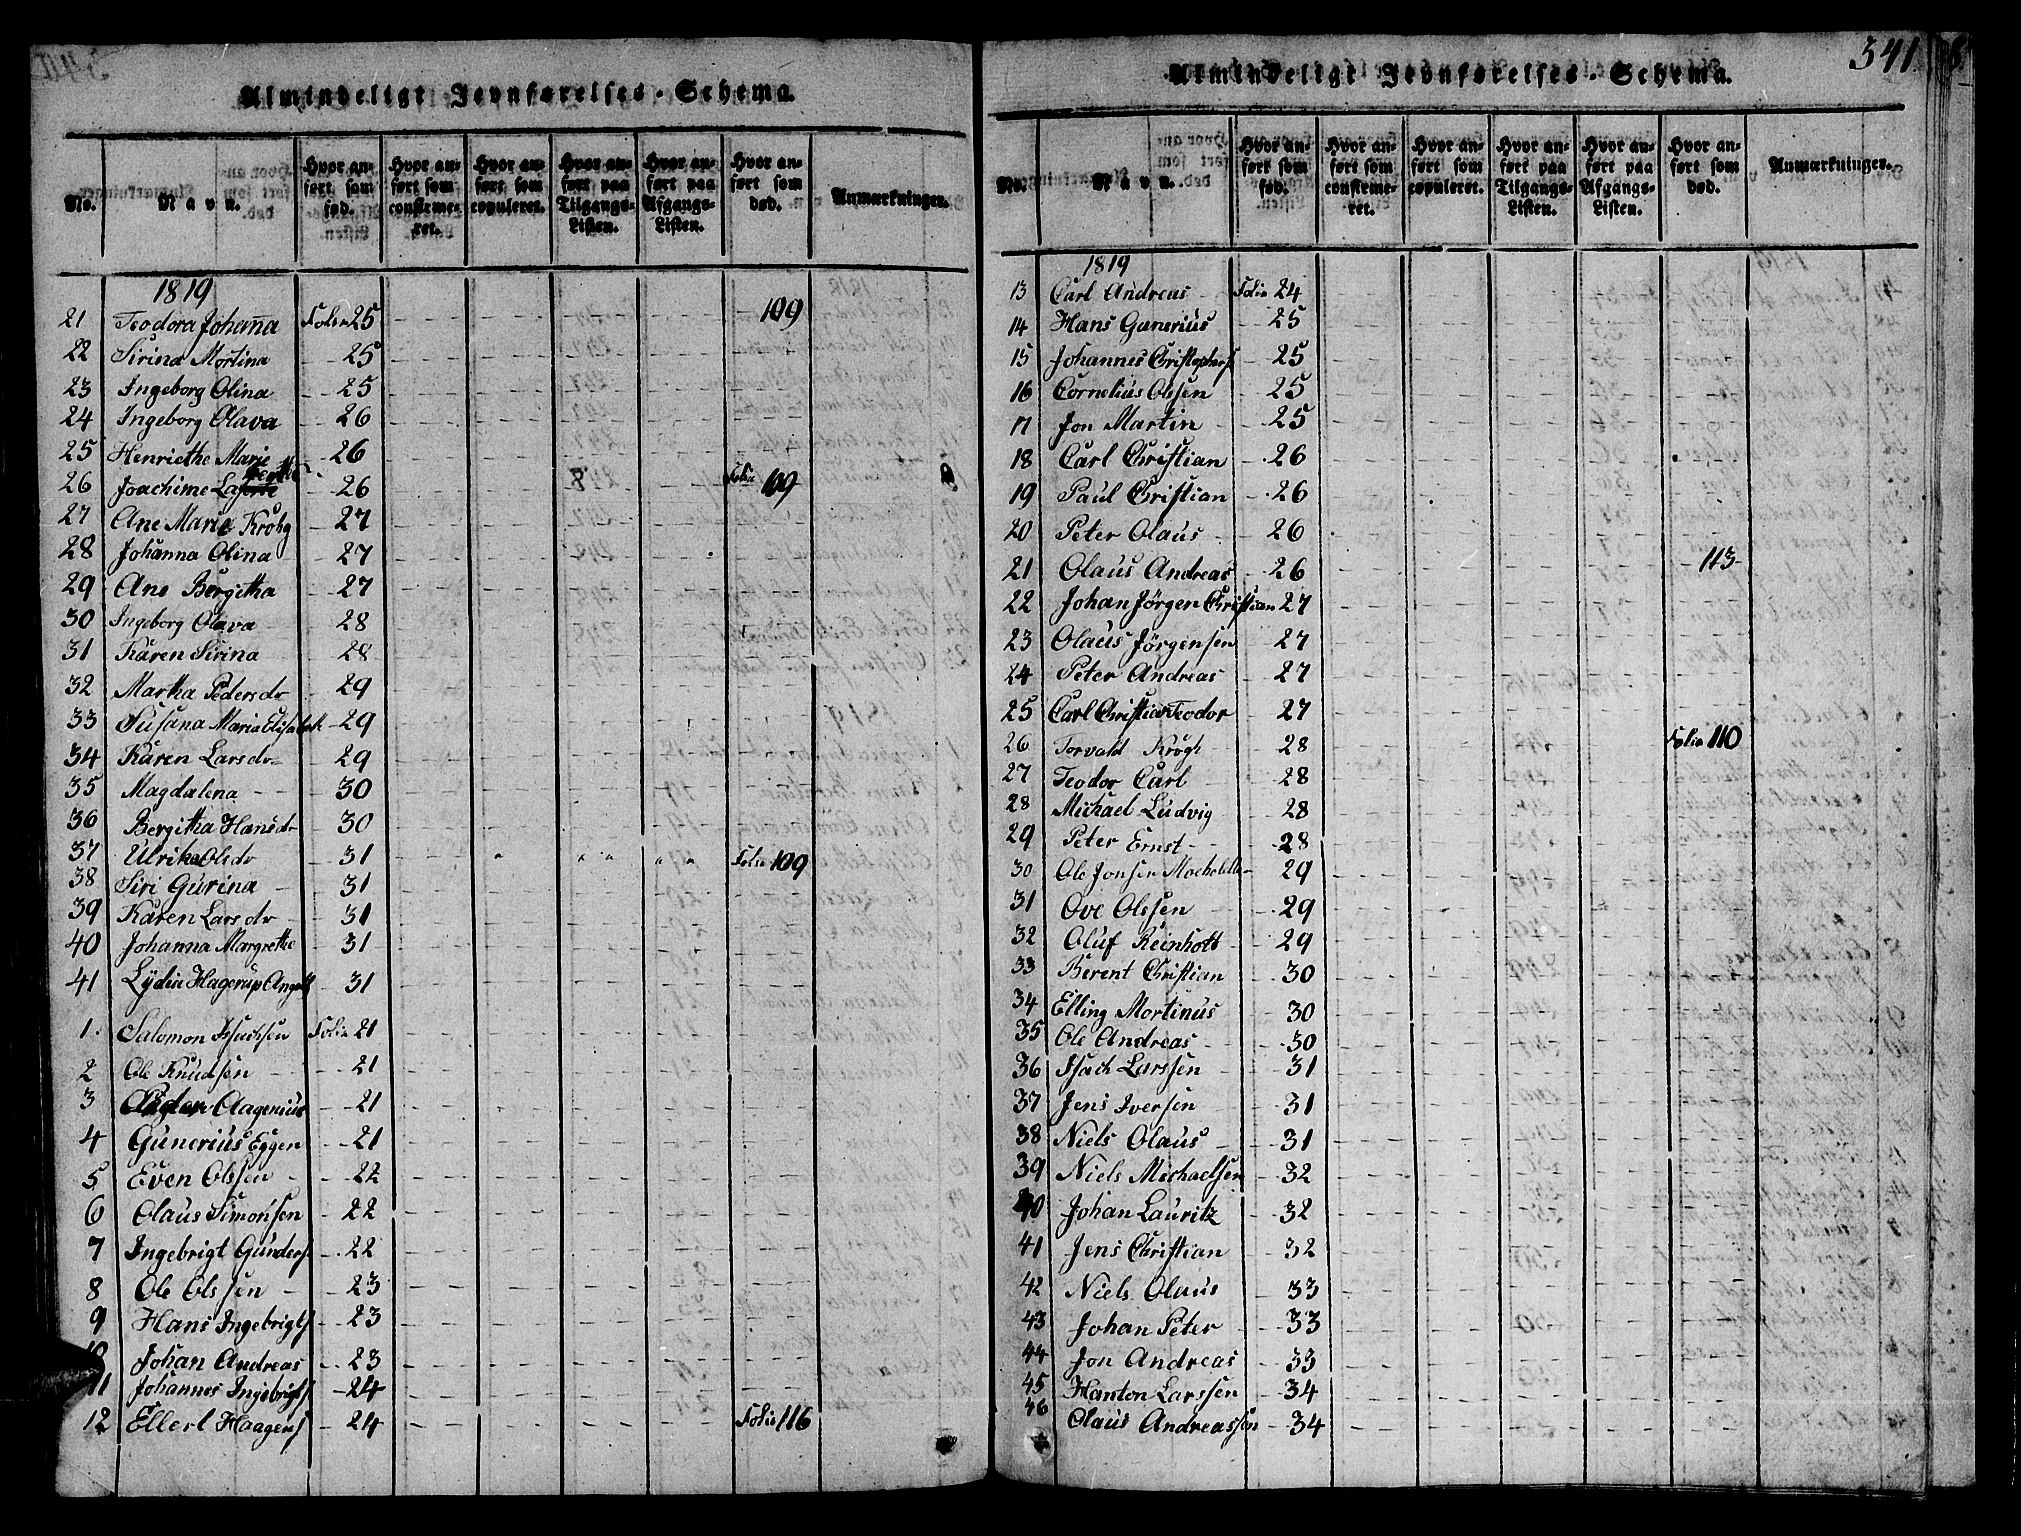 Almindeligt Jevnførelses-Schema.
No.
Navn.
Hvor anført som fød.
Hvor anført som confirmeret.
Hvor anført som copuleret.
Hvor anført paa Tilgangs-Listen.
Hvor anført paa Afgangs-Listen.
Hvor anført som død.
Anmærkninger.
1819
21 Teodora Johanna Folie 25 109
22 Sirina Mortina 25
23 Ingeborg Olina 25
24 Ingeborg Olava 26
25 Henriethe Marie 26
26 Joachime 26 Folie 109
27 Ane Marie Krohg 27
28 Johanna Olina 27
29 Ane Bergitha 27
30 Ingeborg Olava 28
31 Karen Sirina 28
32 Martha Pedersdr 29
33 Susana Maria Elisabeth 29
34 Karen Larsdr 29
35 Magdalena 30
36 Bergitha Hansdr 30
37 Ulrika Olsdr 31 Folie 109
38 Siri Gurina 31
39 Karen Larsdr 31
40 Johanna Margrethe 31
41 Lydia Hagerup Angell 31
1. Salomon Isachsen Folie 21
2 Ole Knudsen 21
3 Aagenius 21
4 Gunerius Eggen 21
5 Even Olssen 22
6 Olaus Simonsen 22
7 Ingebrigt Gunders 22
8 Ole Olssen 23
9 Hans Ingebrigts 23
10 Johan Andreas 23
11 Johannes Ingebrigts 24
12 Ellert Haagens 24 Folie 116
341
Almindeligt Jevnførelses-Schema.
No.
Navn.
Hvor anført som fød.
Hvor anført som confirmeret.
Hvor anført som copuleret.
Hvor anført paa Tilgangs-Listen.
Hvor anført paa Afgangs-Listen.
Hvor anført som død.
Anmærkninger.
1819
13 Carl Andreas Folie 24
14 Hans Gunerius 25
15 Johannes Christophers 25
16 Cornelius Olssen 25
17 Jon Martin 25
18 Carl Christian 26
19 Paul Christian 26
20 Peter Olaus 26
21 Olaus Andreas 26 113
22 Johan Jörgen Christian 27
23 Olaus Jörgensen 27
24 Peter Andreas 27
25 Carl Christian Teodor 27
26 Torvald Krogh 28 Folie 110
27 Teodor Carl 28
28 Michael Ludvig 28
29 Peter Ernst 28
30 Ole Jonsen 29
31 Ove Olssen 29
32 Oluf Reinholt 29
33 Berent Christian 30
34 Elling Mortinus 30
35 Ole Andreas 30
36 Isach Larssen 31
37 Jens Iversen 31
38 Niels Olaus 31
39 Niels Michaelsen 32
40 Johan Lauritz 32
41 Jens Christian 32
42 Niels Olaus 33
43 Johan Peter 33
44 Jon Andreas 33
45 Hanton Larssen 34
46 Olaus Andreassen 34